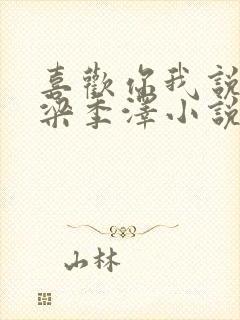 喜歡你我說
梁季澤小說
山林